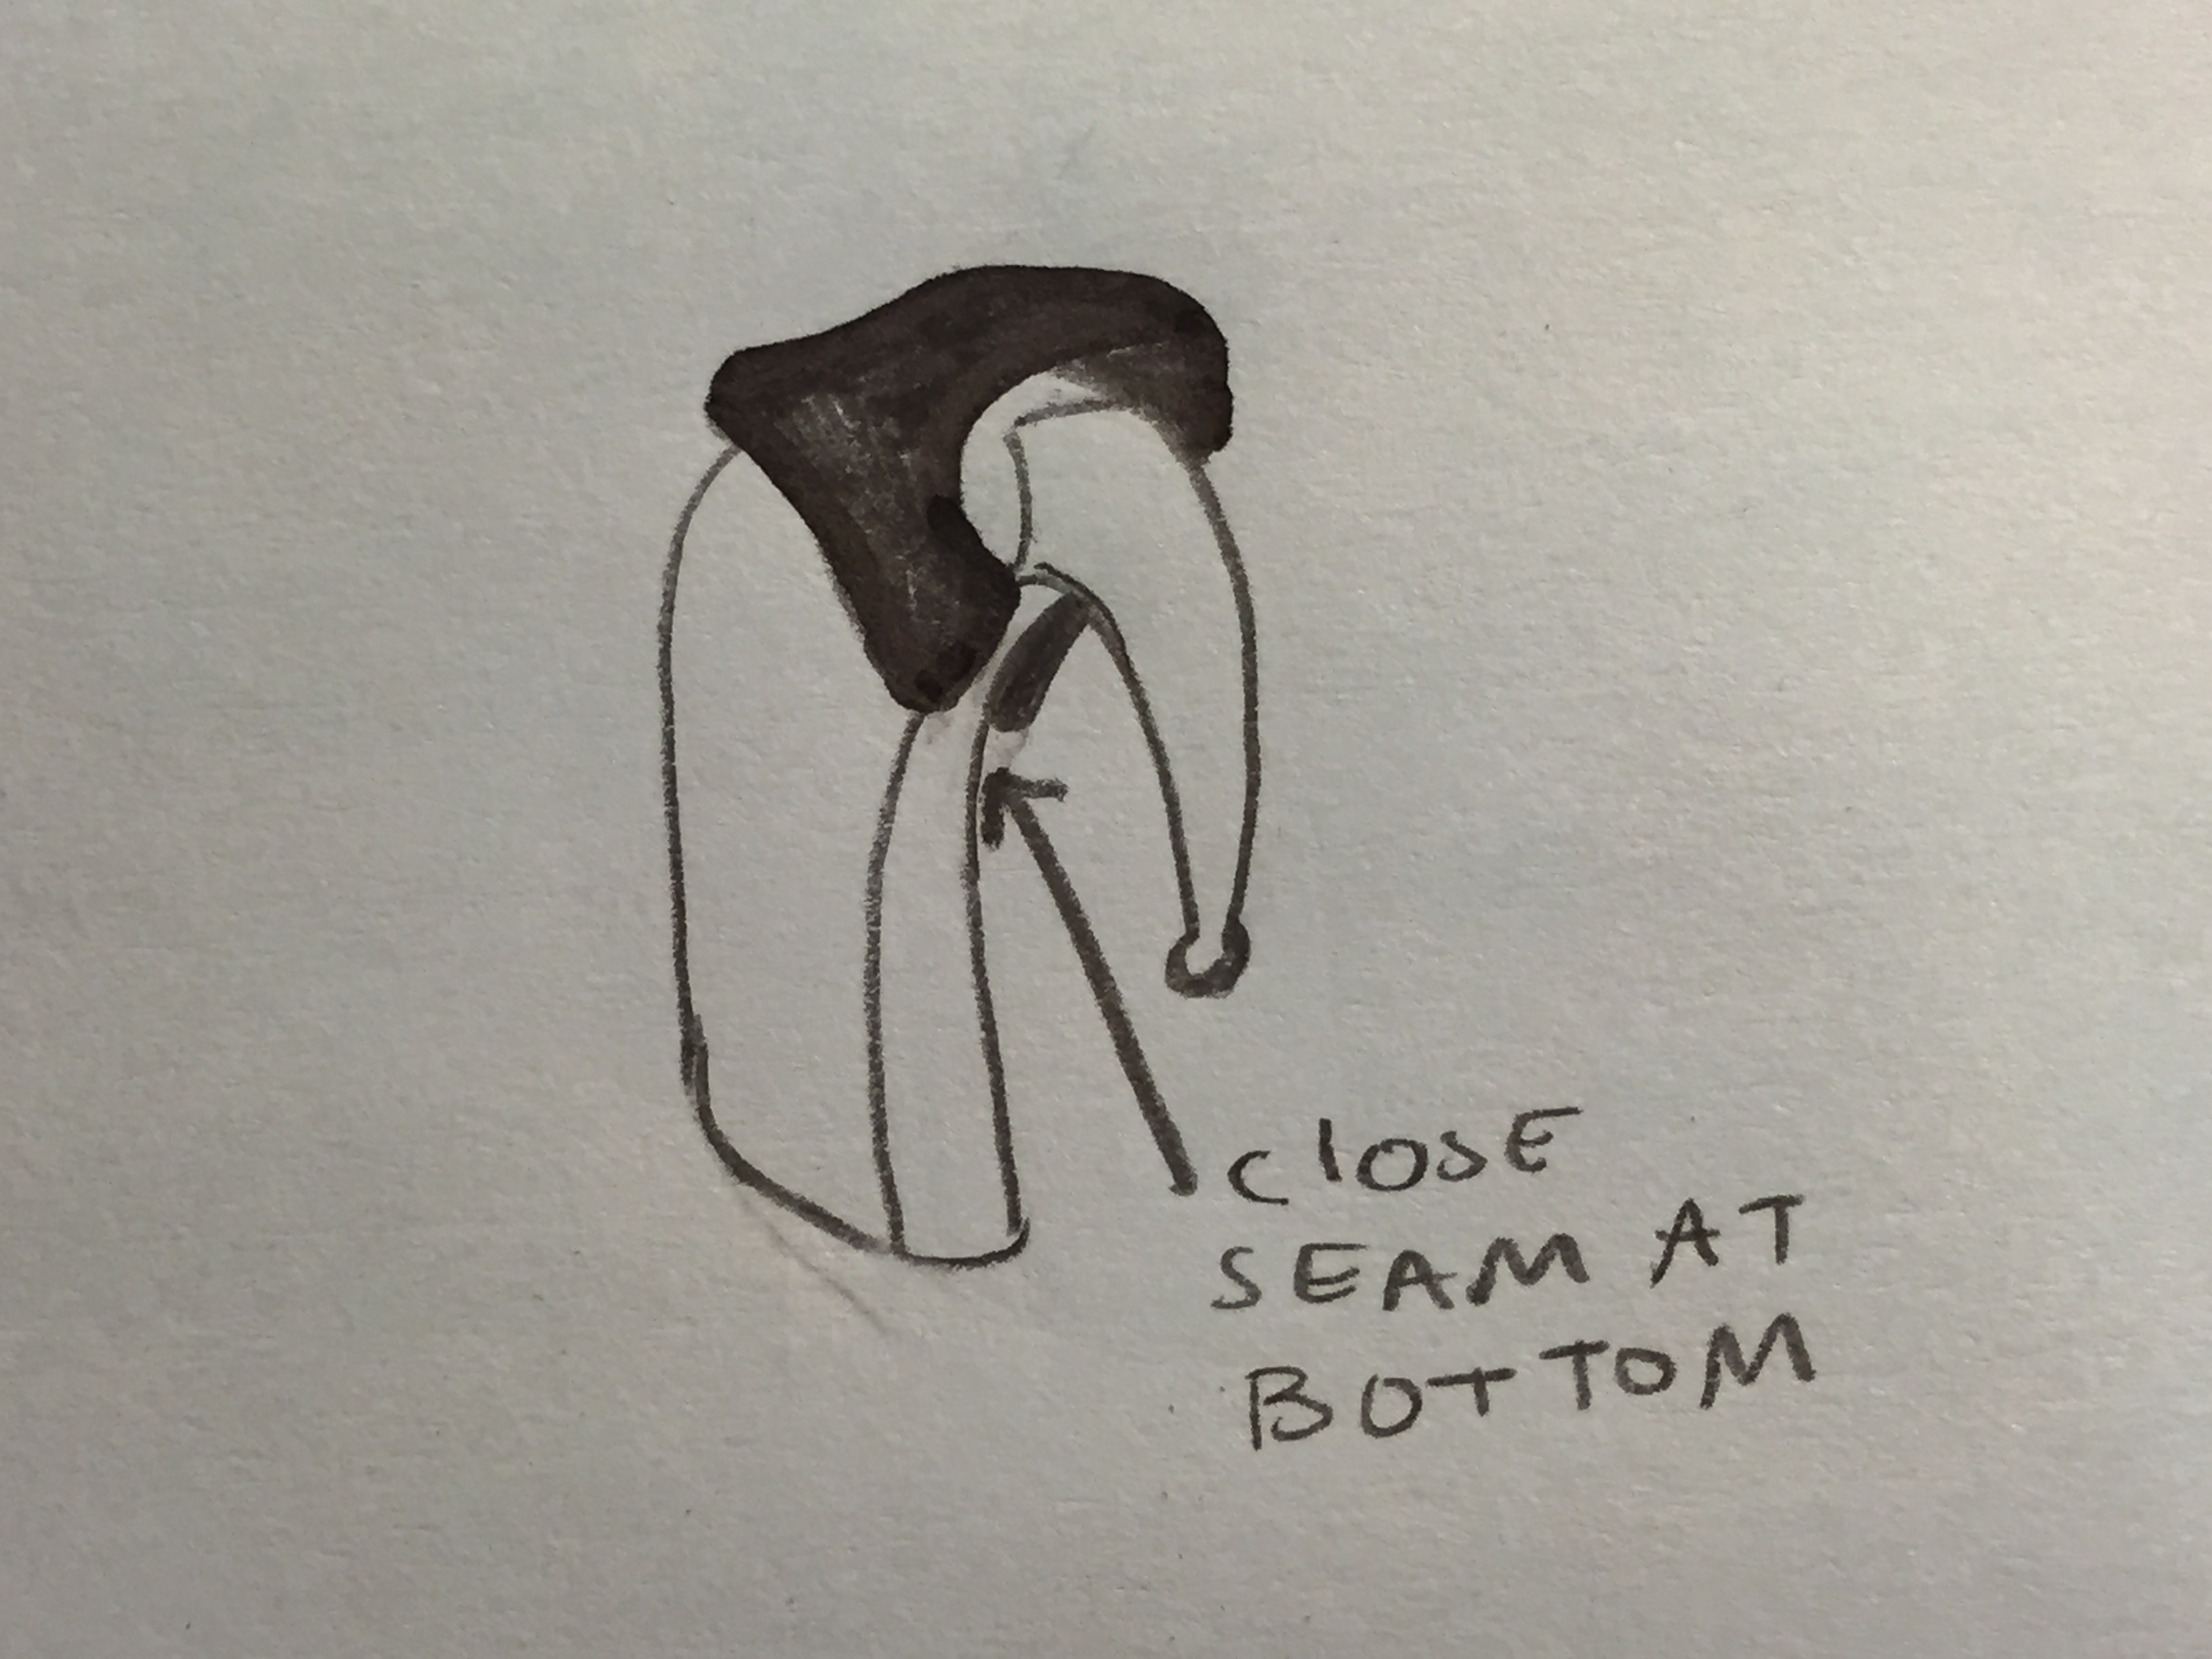 CLOSE
SEAM AT
BOTTOM